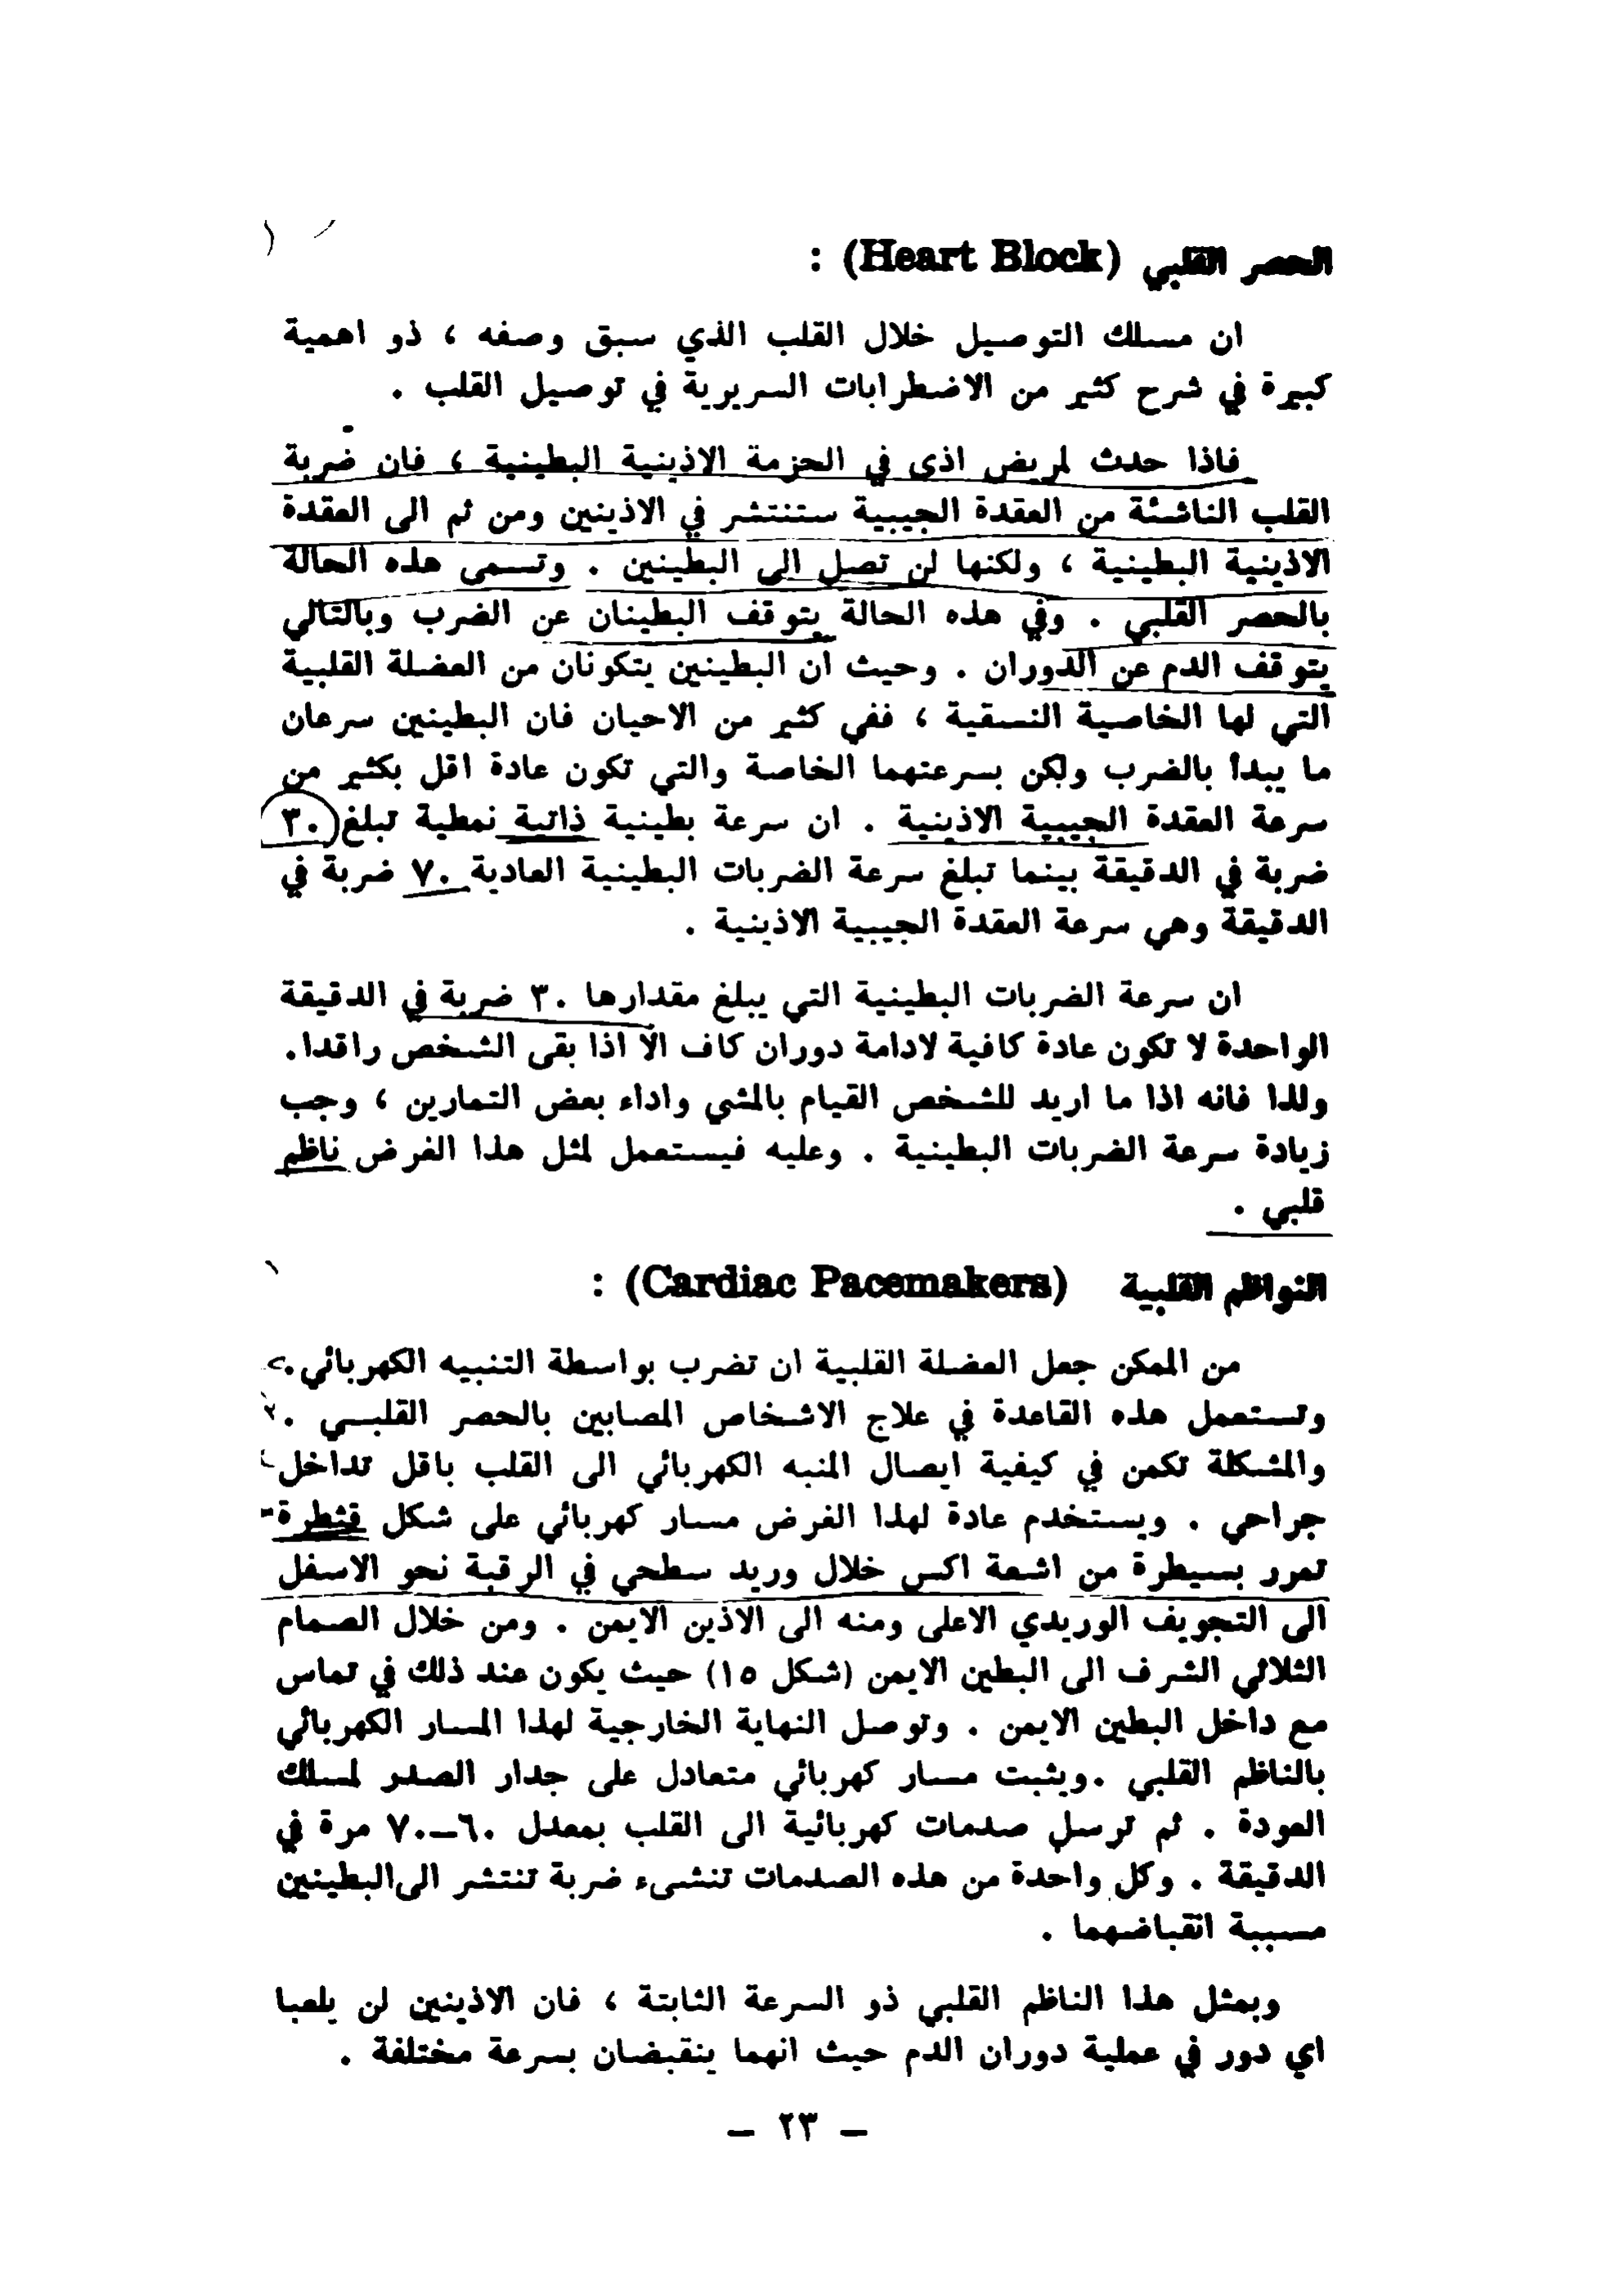 الحصر القلبي (Heart Block) :
ان مسلك التوصيل خلال القلب الذي سبق وصفه ، ذو اهمية
كبيرة في شرح كثير من الاضطرابات السريرية في توصيل القلب .
فاذا حدث لمريض اذى في الحزمة الاذينية البطينية ، فان ضربة
القلب الناشئة من العقدة الجيبية ستنتشر في الاذينين ومن ثم الى العقدة
الاذينية البطينية ، ولكنها لن تصل الى البطينين . وتسمى هذه الحالة
بالحصر القلبي . وفي هذه الحالة يتوقف البطينان عن الضرب وبالتالي
يتوقف الدم عن الدوران . وحيث ان البطينين يتكونان من العضلة القلبية
التي لها الخاصية النسقية ، ففي كثير من الاحيان فان البطينين سرعان
ما يبدأ بالضرب ولكن بسرعتهما الخاصة والتي تكون عادة اقل بكثير من
سرعة العقدة الجيبية الاذينية . ان سرعة بطينية ذاتية نمطية تبلغ ٣٠
ضربة في الدقيقة بينما تبلغ سرعة الضربات البطينية العادية ٧٠ ضربة في
الدقيقة وهي سرعة العقدة الجيبية الاذينية .
ان سرعة الضربات البطينية التي يبلغ مقدارها ٣٠ ضربة في الدقيقة
الواحدة لا تكون عادة كافية لادامة دوران كاف الا اذا بقى الشخص راقدا .
ولذا فانه اذا ما اريد للشخص القيام بالمشي واداء بعض التمارين ، وجب
زيادة سرعة الضربات البطينية . وعليه فيستعمل لمثل هذا الغرض ناظم
قلبي .
النواظم القلبية (Cardiac Pacemakers) :
من الممكن جعل العضلة القلبية ان تضرب بواسطة التنبيه الكهربائي .
وتستعمل هذه القاعدة في علاج الاشخاص المصابين بالحصر القلبي .
والمشكلة تكمن في كيفية ايصال المنبه الكهربائي الى القلب باقل تداخل
جراحي . ويستخدم عادة لهذا الغرض مسار كهربائي على شكل قثطرة
تمرر بسيطرة من اشعة اكس خلال وريد سطحي في الرقبة نحو الاسفل
الى التجويف الوريدي الاعلى ومنه الى الاذين الايمن . ومن خلال الصمام
الثلاثي الشرف الى البطين الايمن (شكل ١٥) حيث يكون عند ذلك في تماس
مع داخل البطين الايمن . وتوصل النهاية الخارجية لهذا المسار الكهربائي
بالناظم القلبي .ويثبت مسار كهربائي متعادل على جدار الصدر لمسلك
العودة . ثم ترسل صدمات كهربائية الى القلب بمعدل ٦٠–٧٠ مرة في
الدقيقة . وكل واحدة من هذه الصدمات تنشىء ضربة تنتشر الى البطينين
مسببة انقباضهما .
وبمثل هذا الناظم القلبي ذو السرعة الثابتة ، فان الاذينين لن يلعبا
اي دور في عملية دوران الدم حيث انهما ينقبضان بسرعة مختلفة .
– ٢٣ –